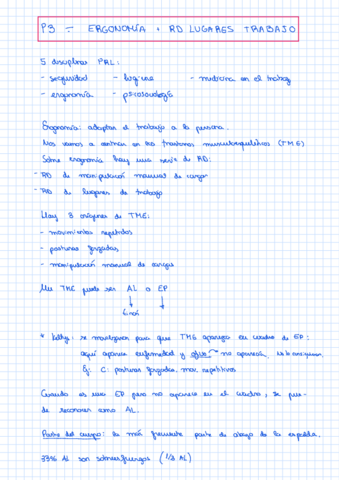 P3 - ERGONOMÍA + RD LUGARES TRABAJO
5 disciplinas PRL:
- seguridad - higiene - medicina en el trabajo
- ergonomía - psicosociología
Ergonomía: adaptar el trabajo a la persona.
Nos vamos a centrar en los trastornos musculoesqueléticos (TME)
Sobre ergonomía hay una serie de RD:
- RD de manipulación manual de cargas
- RD de lugares de trabajo
Hay 3 orígenes de TME:
- movimientos repetidos
- posturas forzadas,
- manipulación manual de cargas
Un TME puede ser AL o EP
↓ ↓
6 no
* se para que TME aparezca en cuadro de EP:
aquí aparece enfermedad y → no aparecen,
Ej: C: posturas forzadas, mov. repetitivos
Cuando es una EP pero no aparece en el cuadro, se pue-
de reconocer como AL.
Parte del cuerpo: la más frecuente parte de abajo de la espalda.
33% AL son sobreesfuerzos (1/3 AL)